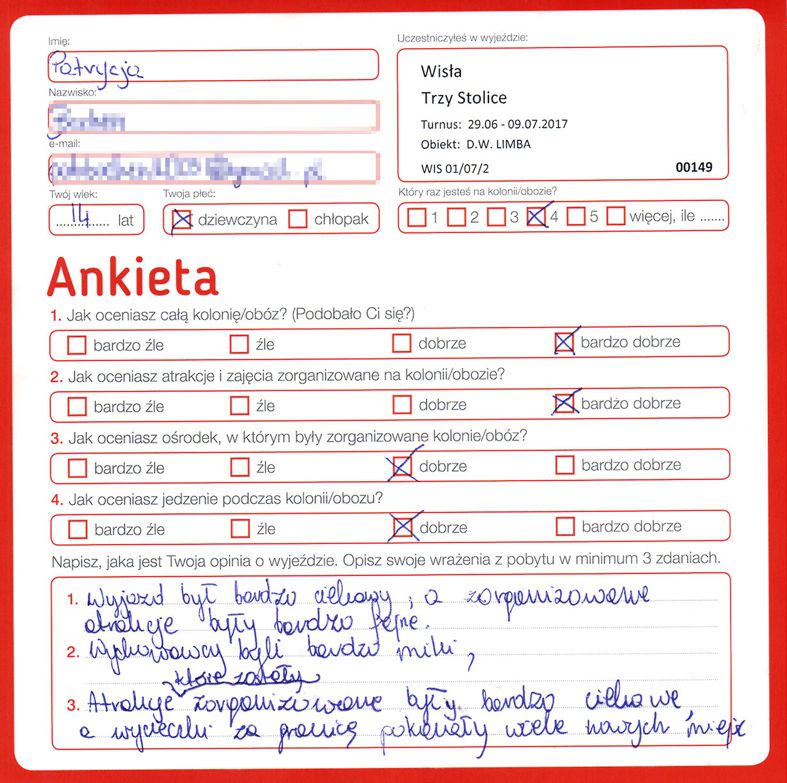 Imię:
Patrycja
Nazwisko:
e-mail:
Twój wiek:
14 lat
Twoja płeć:
dziewczyna chłopak
Uczestniczyłeś w wyjeździe:
Wisła
Trzy Stolice
Turnus: 29.06 - 09.07.2017
Obiekt: D.W. LIMBA
WIS 01/07/2 00149
Który raz jesteś na kolonii/obozie?
1 2 3 4 5 więcej, ile .......
Ankieta
1. Jak oceniasz całą kolonię/obóz? (Podobało Ci się?)
bardzo źle źle dobrze bardzo dobrze
2. Jak oceniasz atrakcje i zajęcia zorganizowane na kolonii/obozie?
bardzo źle źle dobrze bardzo dobrze
3. Jak oceniasz ośrodek, w którym były zorganizowane kolonie/obóz?
bardzo źle źle dobrze bardzo dobrze
4. Jak oceniasz jedzenie podczas kolonii/obozu?
bardzo źle źle dobrze bardzo dobrze
Napisz, jaka jest Twoja opinia o wyjeździe. Opisz swoje wrażenia z pobytu w minimum 3 zdaniach.
1. Wyjazd był bardzo ciekawy, a zorganizowane
atrakcje były bardzo fajne.
2. Wychowawcy byli bardzo mili,
które zostały
3. Atrakcje zorganizowane były bardzo ciekawe,
a wycieczki za granicę pokazały wiele nowych miejsc